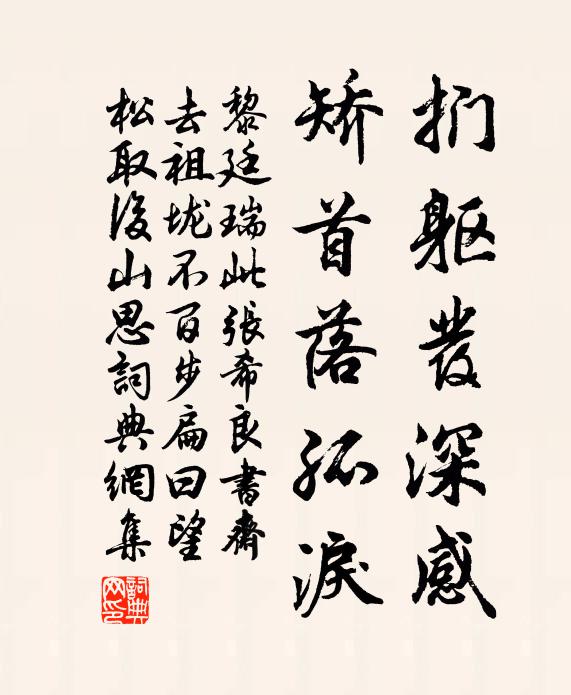 捫軀發深感
矯首落孤淚
黎廷瑞此張希良書齋
去祖垅不百步扁曰望
松取後山思詞典網集
詞典
网印